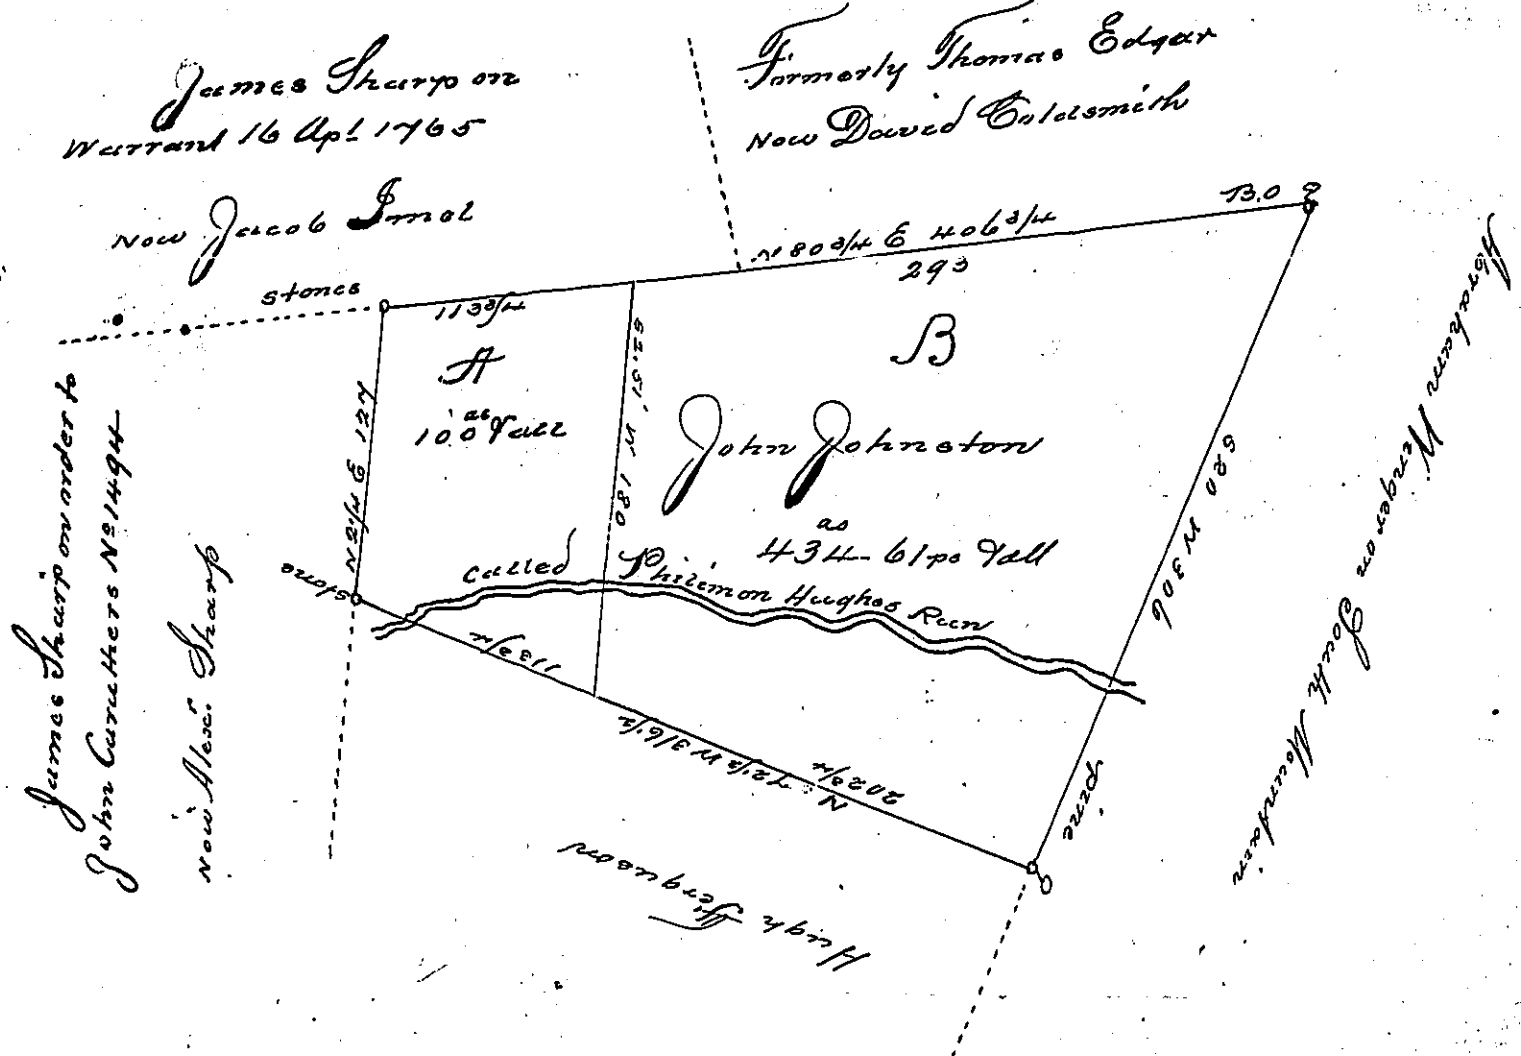 James Sharp on
Warrant 16 Apl 1765
Now Jacob Imel
Formerly Thomas Edgar
Now David Goldsmith
stones
N 80 3/4 E 406 3/4
B.O
113 3/4
293
A
100 as & all
B
John Johnston
as
434-61 ps & all
Called Philimon Hughes Run
N 2 1/4 E 127
S 2.51' W 180
S 20 W 306
stone
113 3/4
N 72 1/2 W 316 1/2
202 3/4
pine
James Sharp on order to
John Caruthers No 1494
Now Alexr Sharp
Hugh Ferguson
Abraham Wenger on South Mountain